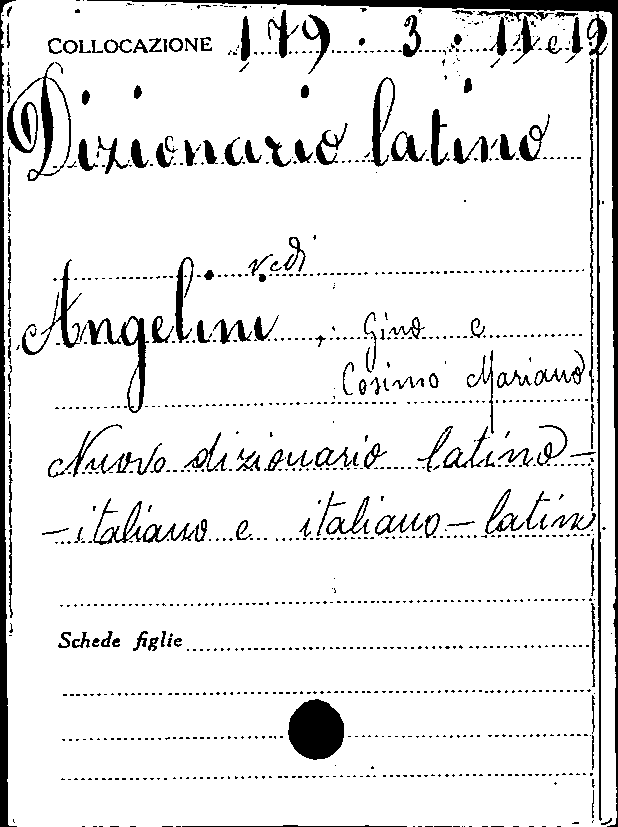 COLLOCAZIONE 179 . 3 . 11 e 12
Dizionario latino
vedi
Angelini, Gino e
Cosimo Mariano
Nuovo dizionario latino-
-italiano e italiano-latin
Schede figlie